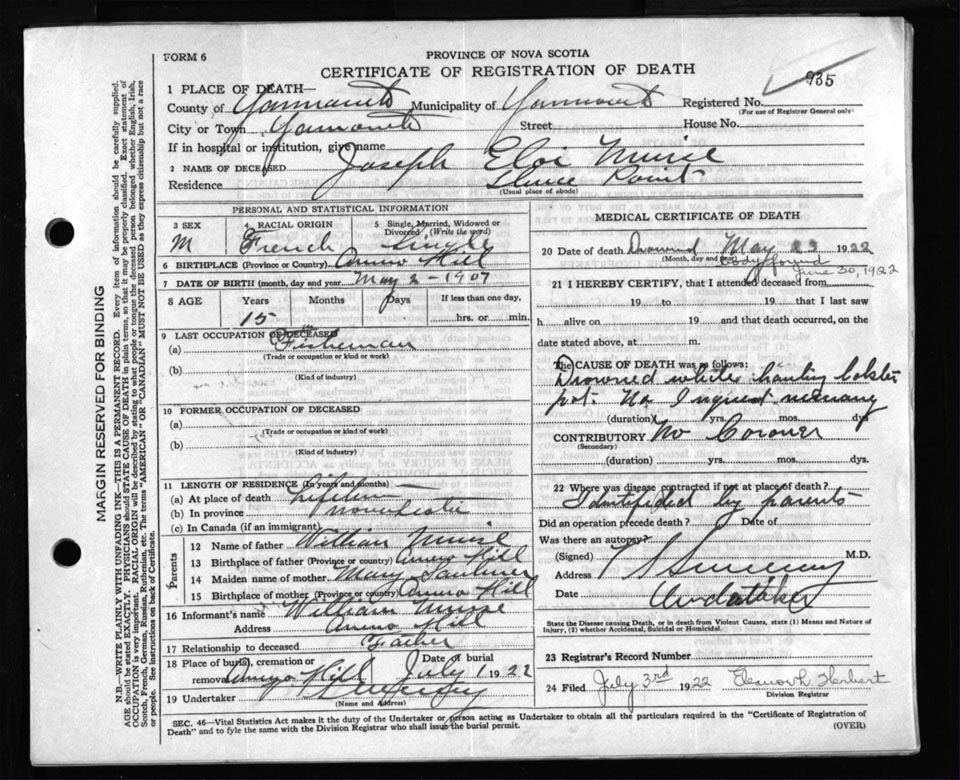 FORM 6
PROVINCE OF NOVA SCOTIA
CERTIFICATE OF REGISTRATION OF DEATH
935
1 PLACE OF DEATH—
County of Yarmouth Municipality of Yarmouth Registered No.
(For use of Registrar General only)
City or Town Yarmouth Street House No.
If in hospital or institution, give name
2 NAME OF DECEASED Joseph Eloi Muise
Residence Sluice Point
(Usual place of abode)
PERSONAL AND STATISTICAL INFORMATION
3 SEX M
4 RACIAL ORIGIN French
5 Single, Married, Widowed or Divorced (Write the word) Single
6 BIRTHPLACE (Province or Country) Amiro Hill
7 DATE OF BIRTH (month, day and year) May 2 - 1907
8 AGE Years Months Days If less than one day,
15 hrs. or min.
9 LAST OCCUPATION OF DECEASED
(a) Fisherman
(Trade or occupation or kind or work)
(b)
(Kind of industry)
10 FORMER OCCUPATION OF DECEASED
(a)
(Trade or occupation or kind of work)
(b)
(Kind of industry)
11 LENGTH OF RESIDENCE (In years and months)
(a) At place of death Lifetime
(b) In province Nova Scotia
(c) In Canada (if an immigrant)
Parents
12 Name of father William Muise
13 Birthplace of father (Province or country) Amiro Hill
14 Maiden name of mother Mary
15 Birthplace of mother (Province or country) Amiro Hill
16 Informant's name William Muise
Address Amiro Hill
17 Relationship to deceased Father
18 Place of burial, cremation or removal Amyro Hill Date of burial July 1 1922
19 Undertaker
(Name and Address)
MEDICAL CERTIFICATE OF DEATH
20 Date of death Drowned May 23 1922
(Month, day and year) body found June 30, 1922
21 I HEREBY CERTIFY, that I attended deceased from
19 to 19 that I last saw
h alive on 19 and that death occurred, on
date stated above, at m.
The CAUSE OF DEATH was as follows:
Drowned while hauling lobster
pot. No Inquest necessary
(duration) yrs. mos. dys
CONTRIBUTORY No Coroner
(Secondary)
(duration) yrs. mos. dys.
22 Where was disease contracted if not at place of death?
Identifided by parents
Did an operation precede death? Date of
Was there an autopsy?
(Signed) M.D.
Address
Date Undataker
State the Disease causing Death, or in death from Violent Causes, state (1) Means and Nature of Injury, (2) whether Accidental, Suicidal or Homicidal.
23 Registrar's Record Number
24 Filed July 3rd 1922 Herbert
Division Registrar
SEC. 46—Vital Statistics Act makes it the duty of the Undertaker or person acting as Undertaker to obtain all the particulars required in the "Certificate of Registration of
Death" and to fyle the same with the Division Registrar who shall issue the burial permit. (OVER)
MARGIN RESERVED FOR BINDING
N.B.—WRITE PLAINLY WITH UNFADING INK—THIS IS A PERMANENT RECORD. Every item of information should be carefully supplied.
AGE should be stated EXACTLY. PHYSICIANS should STATE CAUSE OF DEATH in plain terms, so that it may be properly classified. Exact statement of
OCCUPATION is very important. RACIAL ORIGIN will be described by stating to what people or tongue the deceased person belonged whether English, Irish,
Scotch, French, German, Russian, Ruthenian, etc. The terms "AMERICAN" or "CANADIAN" MUST NOT BE USED as they express citizenship but not a race
or people. See instructions on back of Certificate.